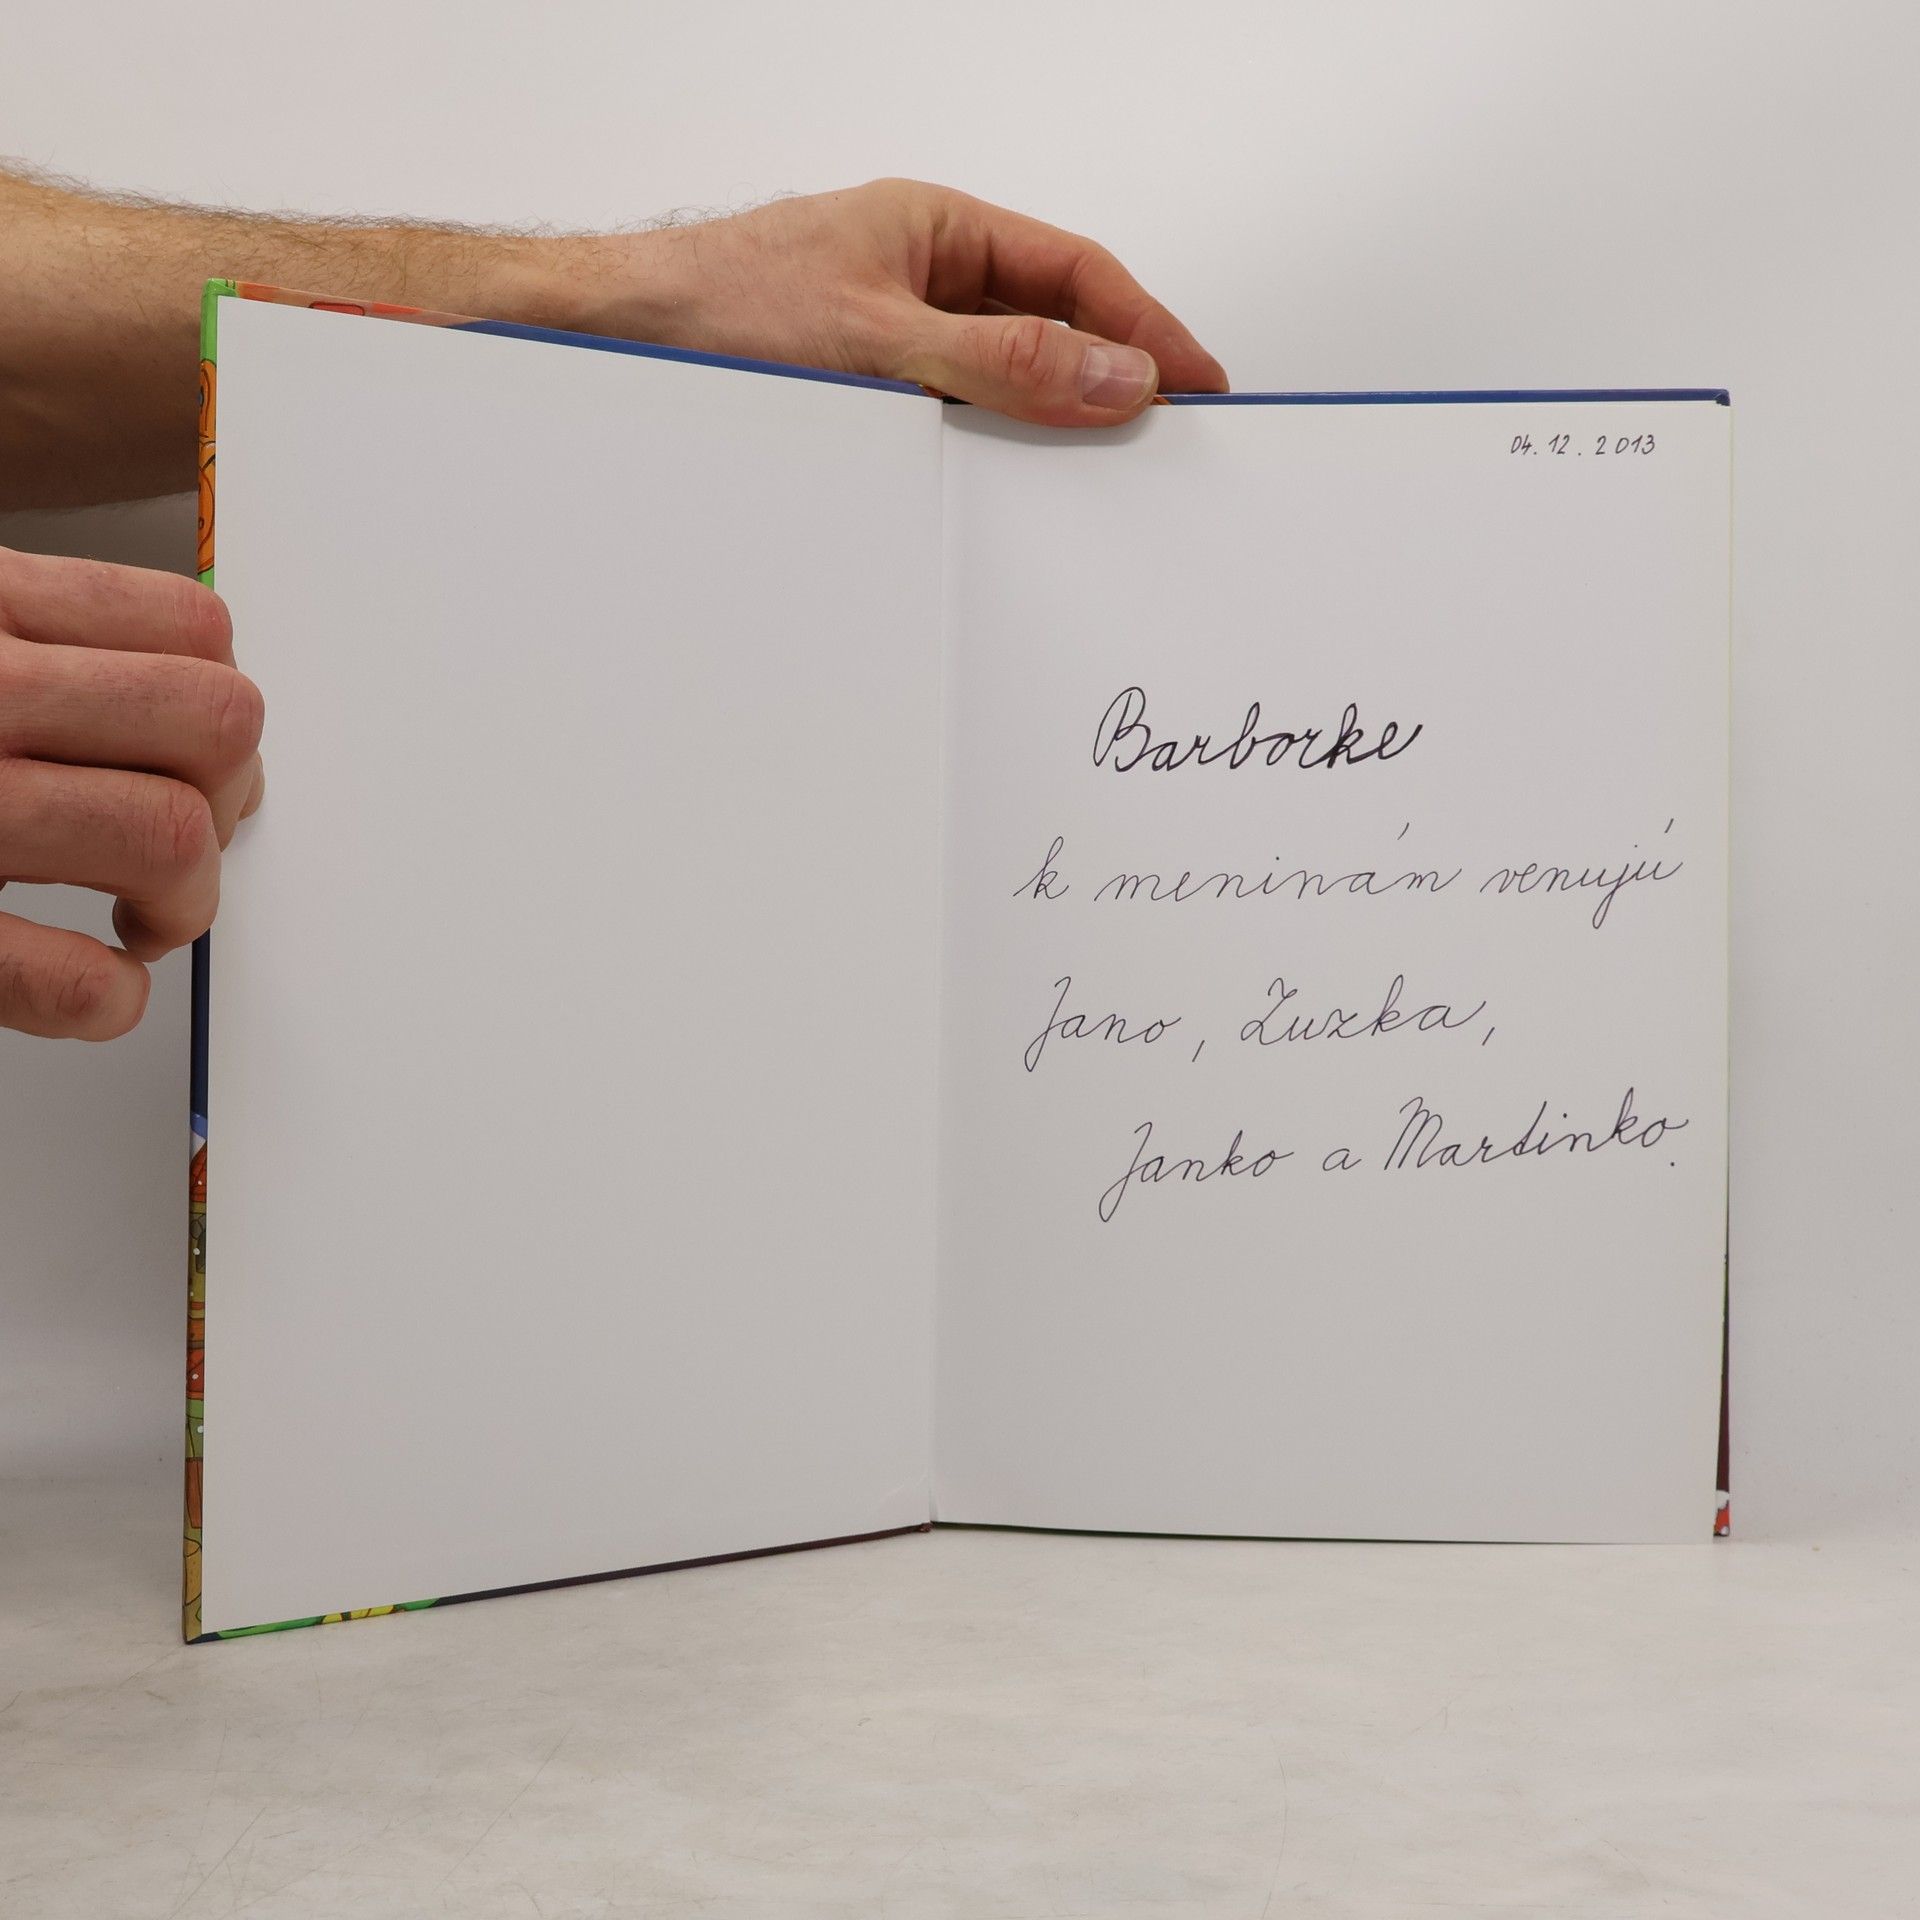 04. 12. 2013
Barborke
k meninám venujú
Jano, Zuzka,
Janko a Martinko.